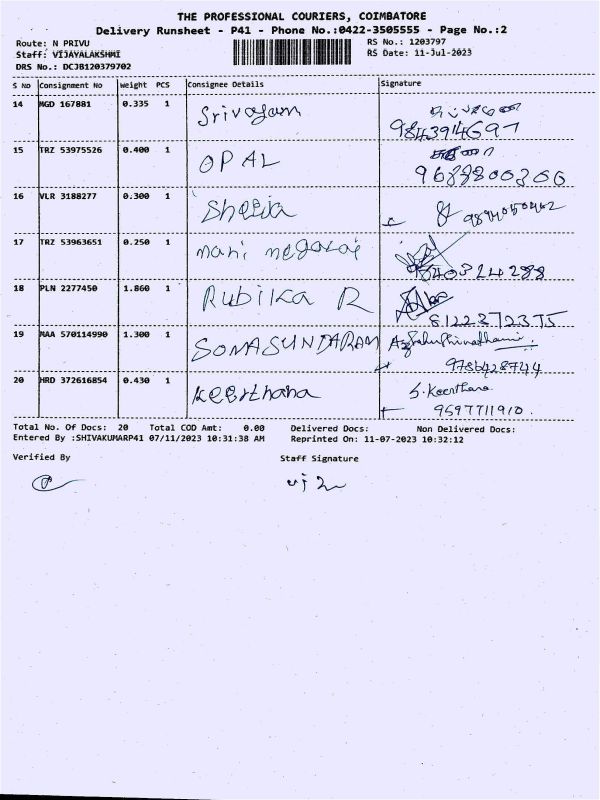 THE PROFESSIONAL COURIERS, COIMBATORE
Delivery Runsheet - P41 - Phone No.:0422-3505555 - Page No.:2
Route: N PRIVU RS No.: 1203797
Staff: VIJAYALAKSHMI RS Date: 11-Jul-2023
DRS No.: DCJB120379702
S No Consignment No Weight PCS Consignee Details Signature
14 MGD 167881 0.335 1 Srivogam
984394697
15 TRZ 53975526 0.400 1 OPAL
9688800300
16 VLR 3188277 0.300 1 Sheela
9894050402
17 TRZ 53963651 0.250 1 mani megalai
18 PLN 2277450 1.860 1 Rubika R
8122372375
19 MAA 570114990 1.300 1 SOMASUNDARAM
9786428744
20 HRD 372616854 0.430 1 Keerthana S. Keerthana
9597711910.
Total No. Of Docs: 20 Total COD Amt: 0.00 Delivered Docs: Non Delivered Docs:
Entered By :SHIVAKUMARP41 07/11/2023 10:31:38 AM Reprinted On: 11-07-2023 10:32:12
Verified By Staff Signature